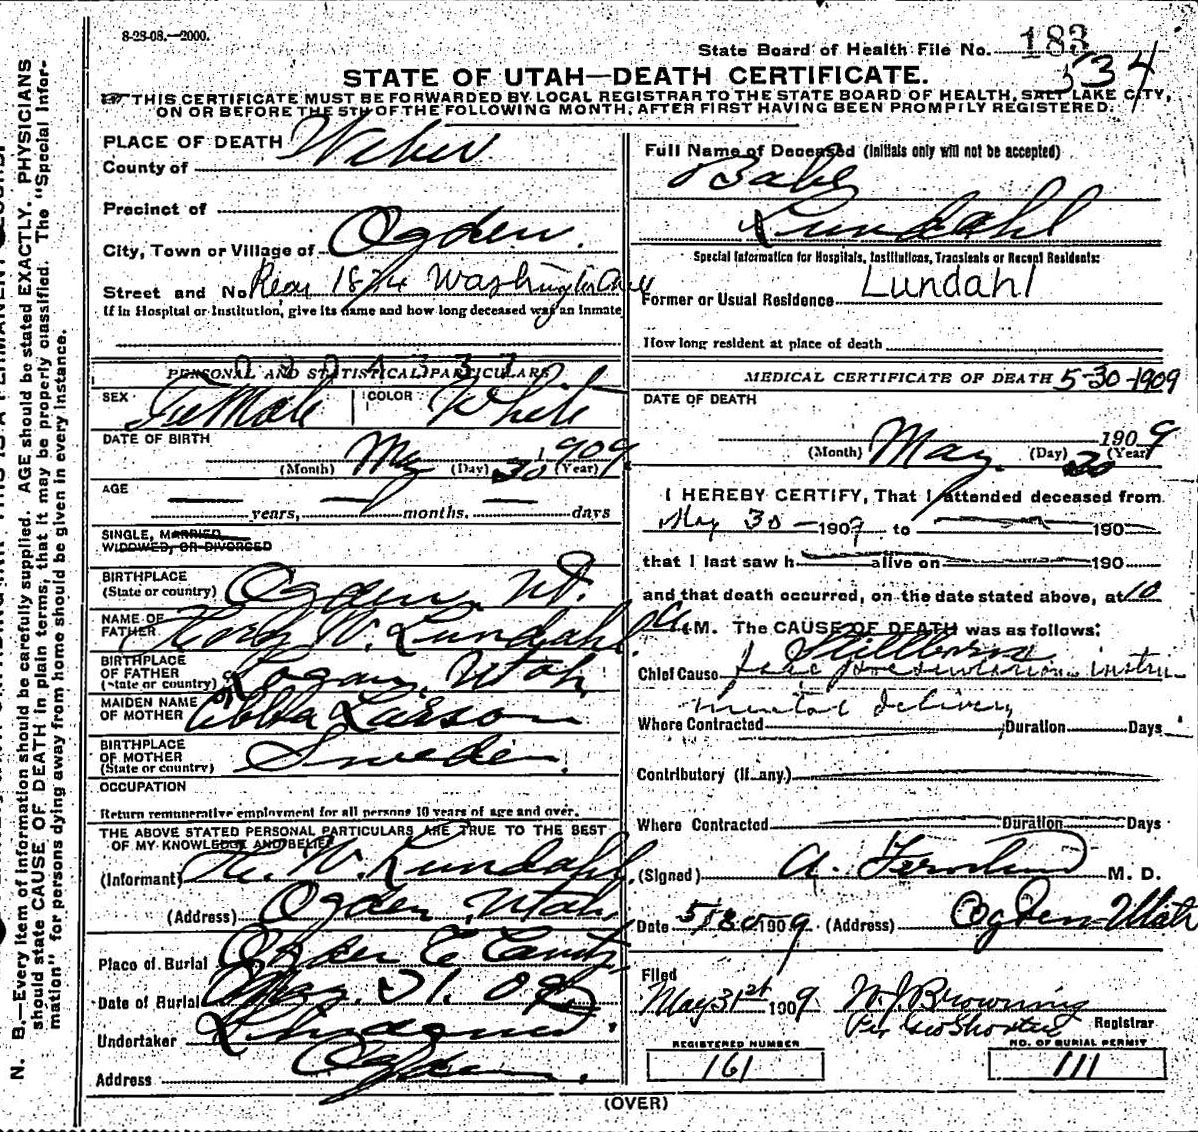 8-28-08.—2000.
State Board of Health File No. 183
534
STATE OF UTAH—DEATH CERTIFICATE.
THIS CERTIFICATE MUST BE FORWARDED BY LOCAL REGISTRAR TO THE STATE BOARD OF HEALTH, SALT LAKE CITY,
ON OR BEFORE THE 5TH OF THE FOLLOWING MONTH, AFTER FIRST HAVING BEEN PROMPTLY REGISTERED.
PLACE OF DEATH
County of Weber
Precinct of
City, Town or Village of Ogden.
Street and No. Rear 1874 Washington Ave
If in Hospital or Institution, give its name and how long deceased was an inmate
PERSONAL AND STATISTICAL PARTICULARS
SEX Female COLOR White
DATE OF BIRTH
(Month) May (Day) 30 (Year) 1909
AGE
years, months. days
SINGLE, MARRIED,
WIDOWED, OR DIVORCED
BIRTHPLACE
(State or country) Ogden, Ut.
NAME OF
FATHER W. Lundahl
BIRTHPLACE
OF FATHER
(State or country) Logan, Utah
MAIDEN NAME
OF MOTHER Ebba Larson
BIRTHPLACE
OF MOTHER
(State or country) Sweden.
OCCUPATION
Return remunerative employment for all persons 10 years of age and over.
THE ABOVE STATED PERSONAL PARTICULARS ARE TRUE TO THE BEST
OF MY KNOWLEDGE AND BELIEF
(Informant) W. Lundahl
(Address) Ogden, Utah
Place of Burial Ogden
Date of Burial May. 31. 09
Undertaker
Address Ogden.
Full Name of Deceased (Initials only will not be accepted)
Babe
Lundahl
Special Information for Hospitals, Institutions, Transients or Recent Residents:
Lundahl
Former or Usual Residence
How long resident at place of death
MEDICAL CERTIFICATE OF DEATH 5-30-1909
DATE OF DEATH
1909
(Month) May. (Day) 30 (Year)
I HEREBY CERTIFY, That I attended deceased from
May 30 — 1909 to 190
that I last saw h alive on 190
and that death occurred, on the date stated above, at 10
a. M. The CAUSE OF DEATH was as follows:
Stillborn
Chief Cause face presentation instru-
mental delivery
Where Contracted Duration Days
Contributory (if any.)
Where Contracted Duration Days
(Signed) A. M. D.
Date 5/30 1909 (Address) Ogden Utah
Filed
May 31st 1909. W. J. Browning
Per Geo Shorten Registrar
REGISTERED NUMBER
161
NO. OF BURIAL PERMIT
111
(OVER)
N. B.—Every item of information should be carefully supplied. AGE should be stated EXACTLY. PHYSICIANS
should state CAUSE OF DEATH in plain terms, that it may be properly classified. The "Special Infor-
mation" for persons dying away from home should be given in every instance.